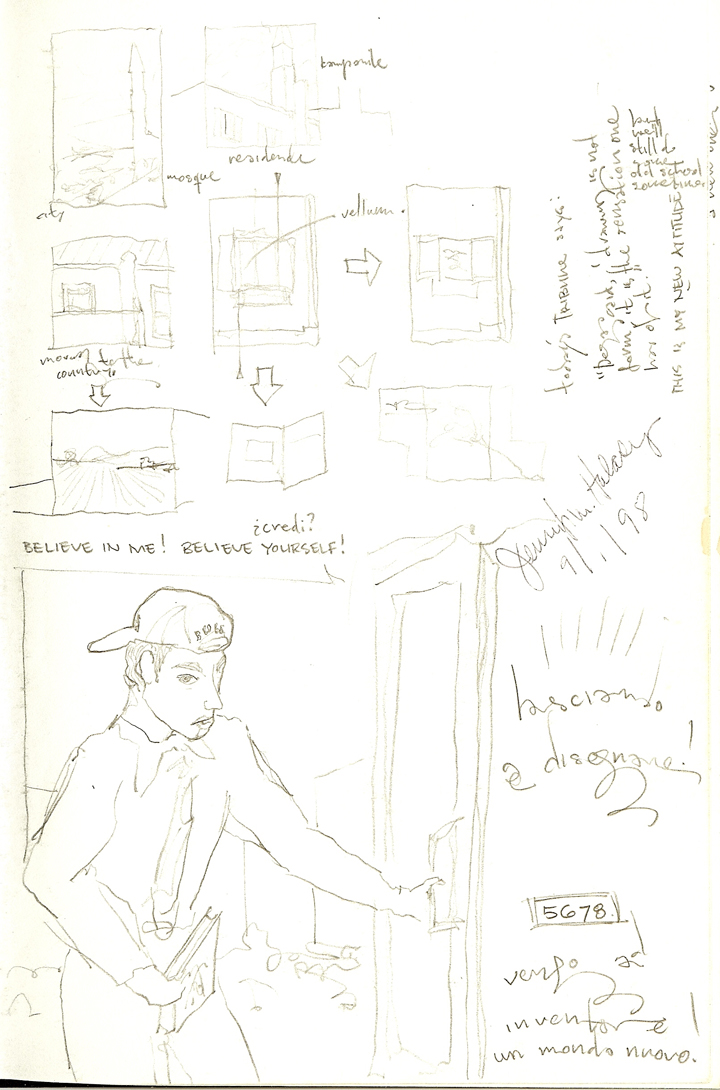 kamponile
residence
mosque
city
vellum.
moving to the
country.
¿credi?
BELIEVE IN ME! BELIEVE YOURSELF!
today's TRIBUNE says:
"Degas said, 'drawing is not
form, it is the sensation one
has of it.'
THIS IS MY NEW ATTITUDE
but
well
still do
some
old school
sometimes
9/1/98
lasciamo
a disegnare!
5678.
vengo ad
inventare
un mondo nuovo.